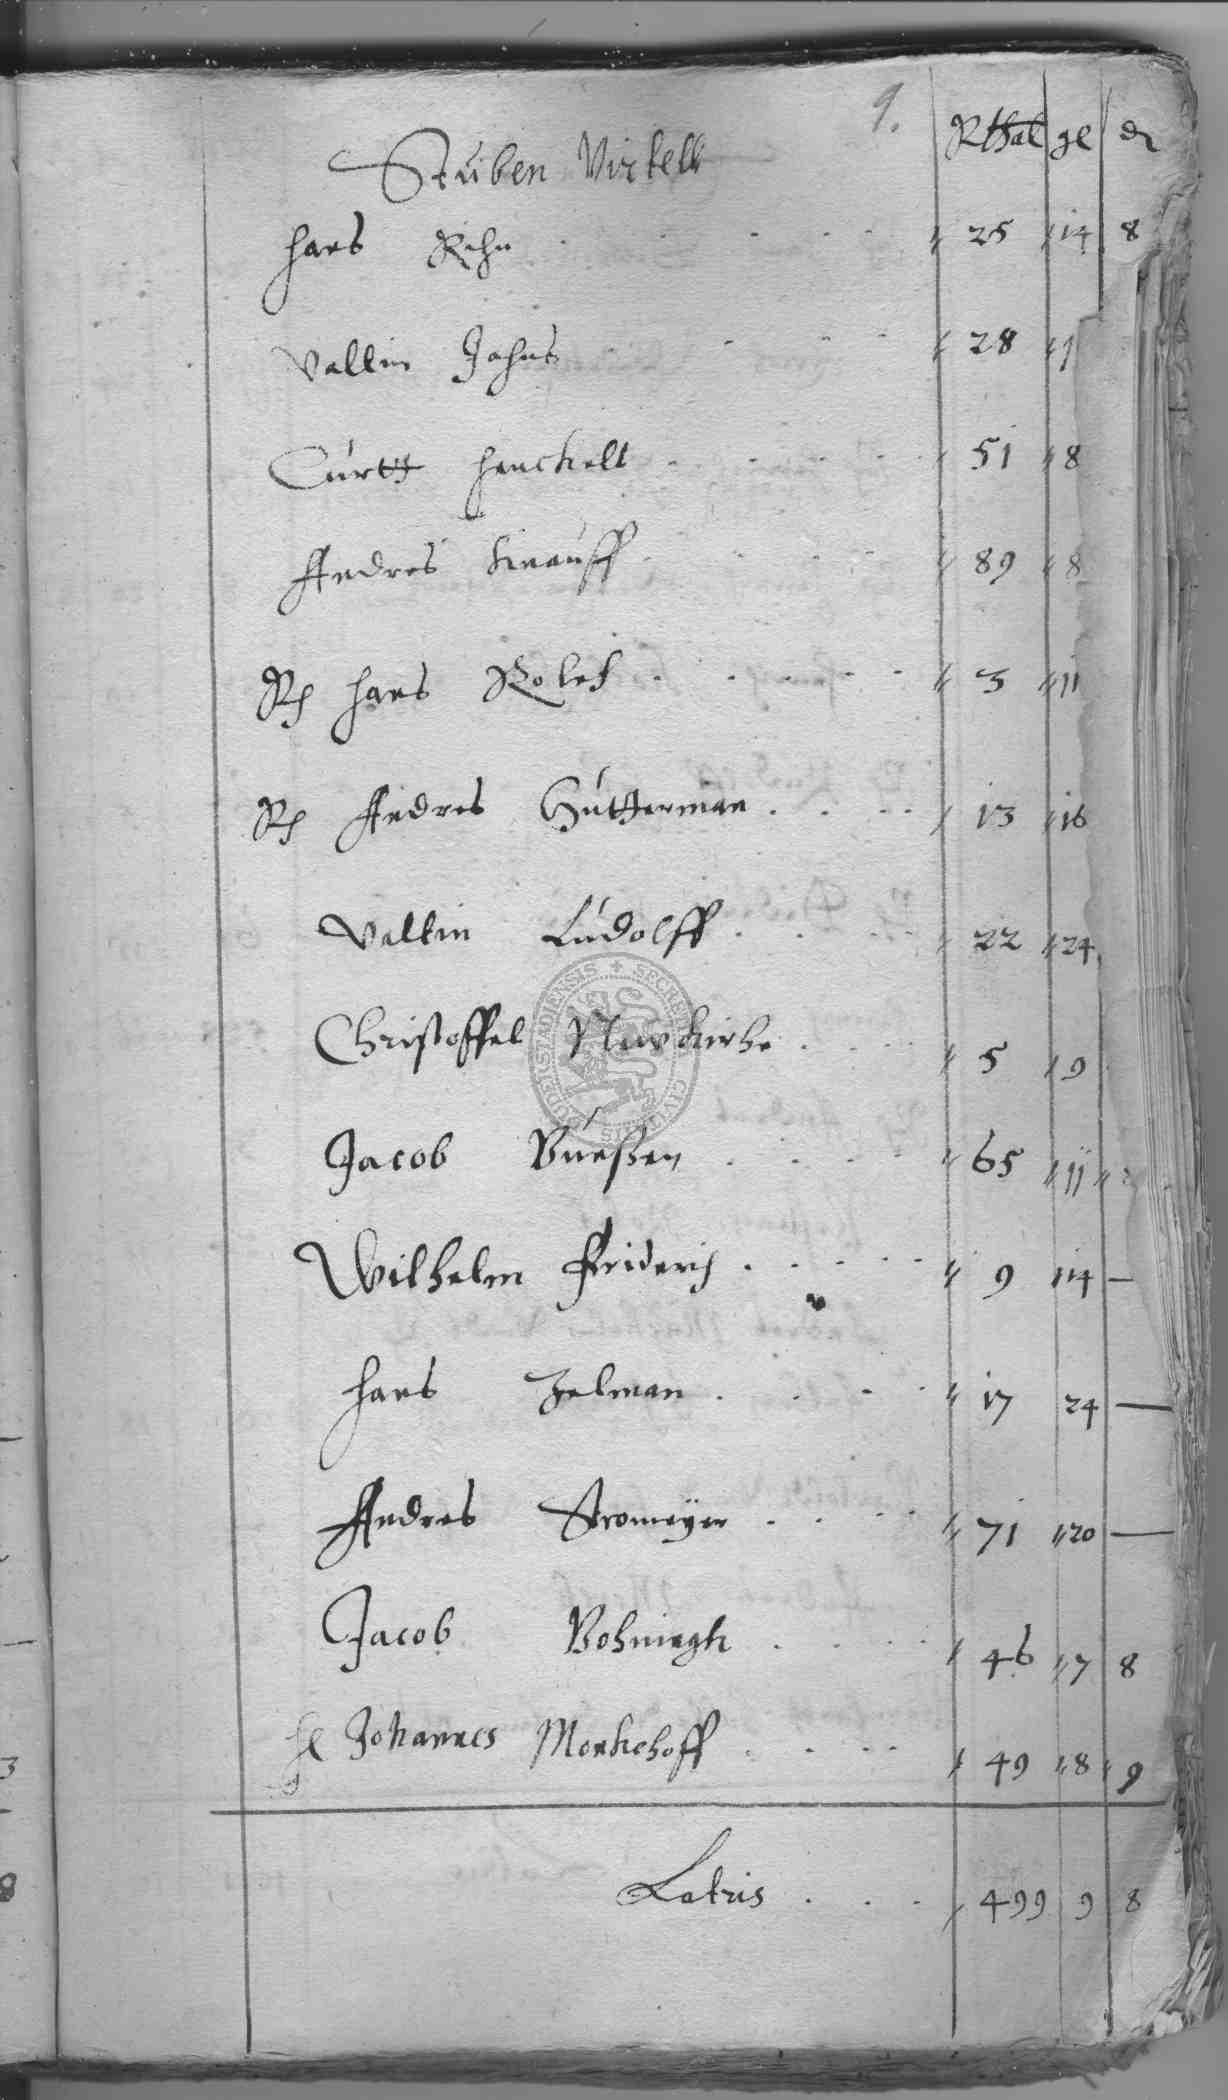 9.
Rthal gl d
Stuben Virtell
Hans Rihn . . . . . . 25 14 8
Valtin Jahns . . . . . 28 1
Curtt Henckell . . . . . 51 8
Andres Knauff . . . . . 89 8
Hans Rolef . . . . . 3 11
Andres Gutterman . . . . 13 16
Valtin Ludolff . . . . 22 24
Christoffel Nawkirche . . . . 5 9
Jacob Buessen . . . . 65 11
Wilhelm Friderich . . . . . 9 14 —
Hans Zelman . . . . 17 24 —
Andres Stromeyer . . . . 71 20 —
Jacob Bohningk . . . . 46 7 8
H Johannes Monkehoff . . . . 49 8 9
Latris . . . 499 9 8